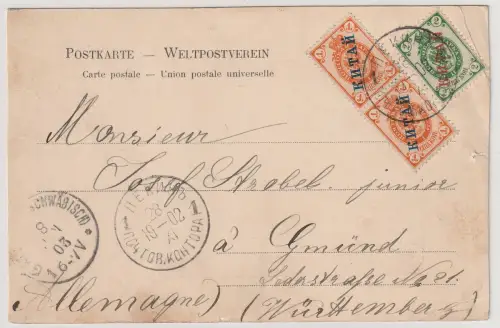 POSTKARTE — WELTPOSTVEREIN
Carte postale — Union postale universelle
КИТАЙ
КИТАЙ
КИТАЙ
Monsieur
Josef Strobel junior
à Gmünd
Ledastraße No 21.
(Allemagne) (Württemberg)
ПЕКИНЪ
19 02
ПОЧТОВ. КОНТОРА
SCHWÄBISCH